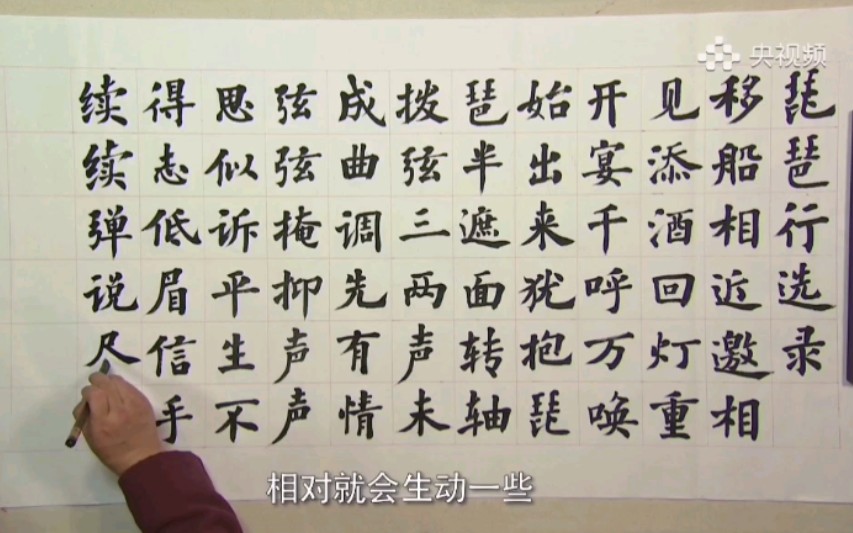 央视频
琵琶行选录
移船相近邀相
见添酒回灯重
开宴千呼万唤
始出来犹抱琵
琶半遮面转轴
拨弦三两声未
成曲调先有情
弦弦掩抑声声
思似诉平生不
得志低眉信手
续续弹说尺
相对就会生动一些